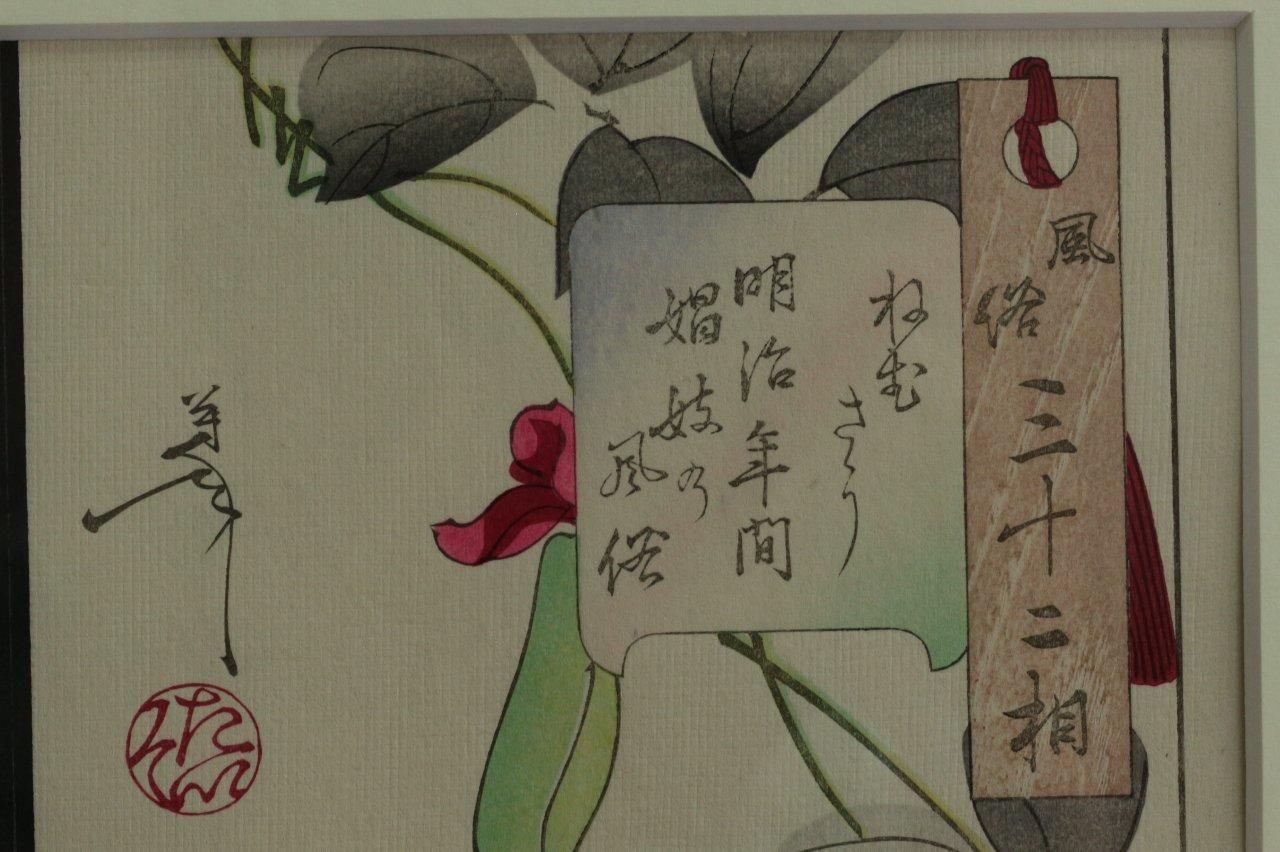 風俗三十二相
ねむさう
明治年間
娼妓の
風俗
芳年